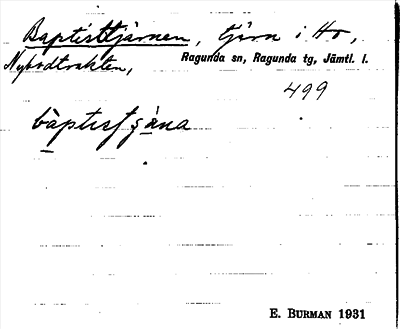 Baptisttjärnen, tjärn i Ho,
Nybodtrakten,
Ragunda sn, Ragunda tg, Jämtl. l.
499
bàptistjäna
E. BURMAN 1931